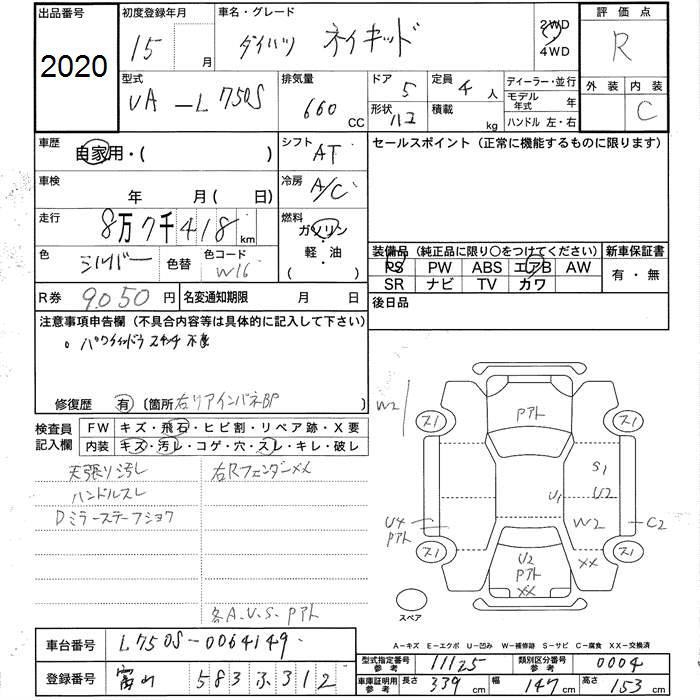 出品番号
2020
初度登録年月
15 月
車名・グレード
ダイハツ ネイキッド
2WD
4WD
評価点
R
外装 内装
C
型式
UA-L750S
排気量
660 CC
ドア 5
形状 ハコ
定員 4 人
積載 kg
ディーラー・並行
モデル年式 年
ハンドル 左・右
車歴
自家用・( )
シフト AT
セールスポイント (正常に機能するものに限ります)
車検
年 月 ( 日)
冷房 A/C
走行
8万7千418 km
燃料
ガソリン
・
軽・油
( )
色
シルバー
色替
色コード
W16
装備品 (純正品に限り○をつけてください)
新車保証書
PS PW ABS エアB AW
SR ナビ TV カワ
有・無
R券 9050 円
名変通知期限 月 日
後日品
注意事項申告欄 (不具合内容等は具体的に記入して下さい)
。パワウィンドウ スイッチ 不良
修復歴 有 〔箇所 右リアインパネBP 〕
検査員記入欄
FW キズ・飛石・ヒビ割・リペア跡・X要
内装 キズ・汚レ・コゲ・穴・スレ・キレ・破レ
天張り汚レ
右Rフェンダーメクレ
ハンドルスレ
Dミラーステーフショク
各A.U.S.Pアト
W2
ス1
Pアト
ス1
S1
U2
U1
U4
Pアト
W2
C2
ス1
U2
Pアト
XX
XX
ス1
スペア
A-キズ E-エクボ U-凹み W-補修跡 S-サビ C-腐食 XX-交換済
車台番号 L750S-0064149
型式指定番号 参考 11125
類別区分番号 参考 0004
登録番号 富山 583 ふ 312
車庫証明用 参考 長さ 339 cm 幅 147 cm 高さ 153 cm